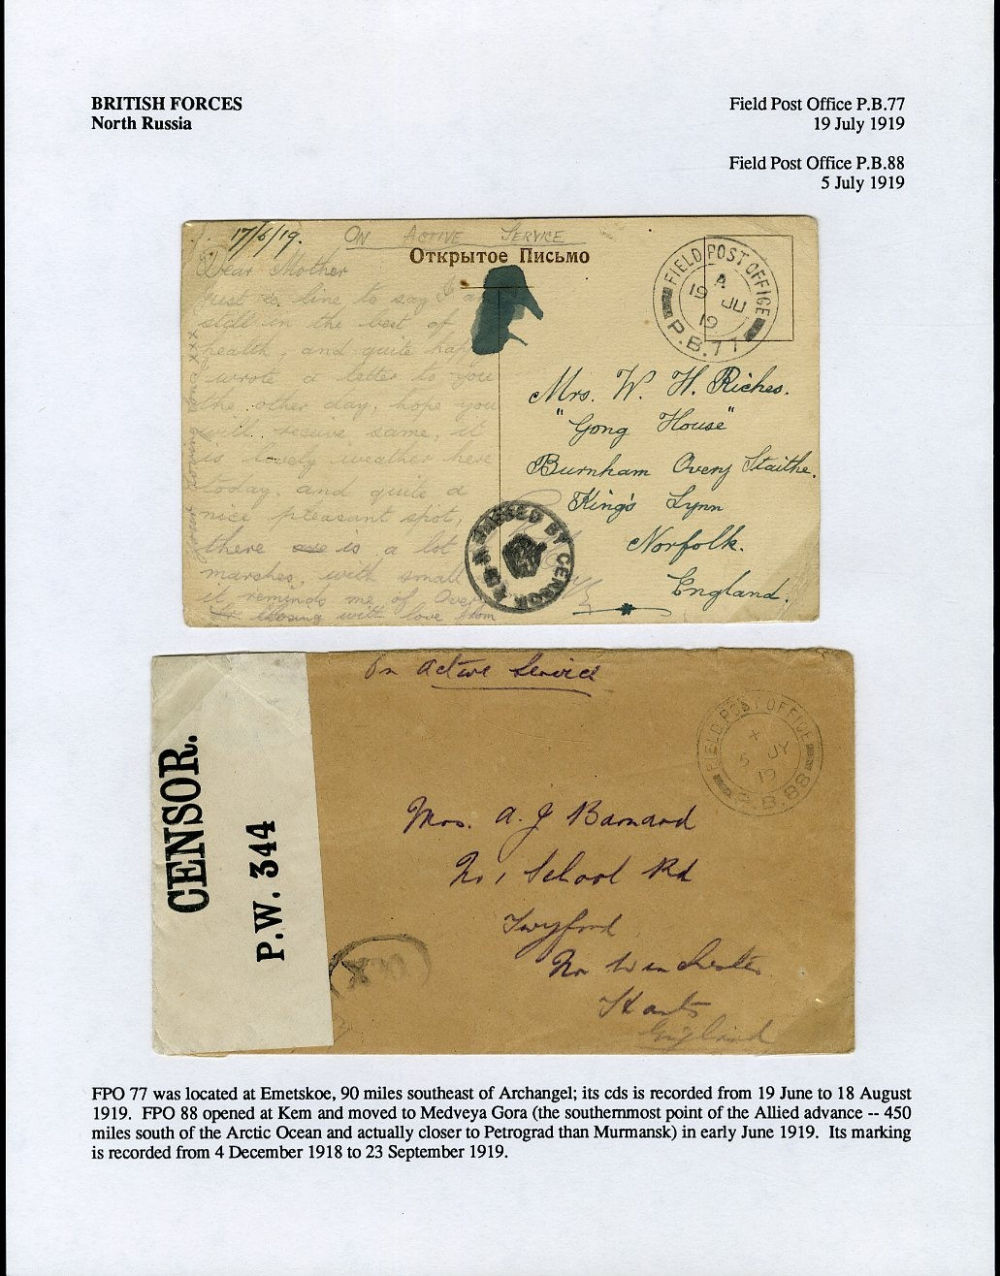 BRITISH FORCES
North Russia
Field Post Office P.B.77
19 July 1919
Field Post Office P.B.88
5 July 1919
17/6/19.
ON ACTIVE SERVICE
Открытое Письмо
FIELD POST OFFICE
A
19 JU
19
P.B.77
Dear Mother
Just a line to say I a
still in the best of
health, and quite hap
wrote a letter to you
the other day, hope you
will receive same, it
is lovely weather here
today, and quite a
nice pleasant spot,
there is a lot
marshes, with small
it reminds me of Over
closing with love from
Mrs. W. H. Riches.
"Gong House"
Burnham Overy Staithe.
King's Lynn
Norfolk.
England.
PASSED BY CENSOR
On Active Service
CENSOR.
P.W. 344
FIELD POST OFFICE
+
5 JY
19
P.B.88
Mrs. A. J Barnard
No 1 School Rd
Twyford
Nr Winchester
Hants
England
FPO 77 was located at Emetskoe, 90 miles southeast of Archangel; its cds is recorded from 19 June to 18 August
1919. FPO 88 opened at Kem and moved to Medveya Gora (the southernmost point of the Allied advance -- 450
miles south of the Arctic Ocean and actually closer to Petrograd than Murmansk) in early June 1919. Its marking
is recorded from 4 December 1918 to 23 September 1919.